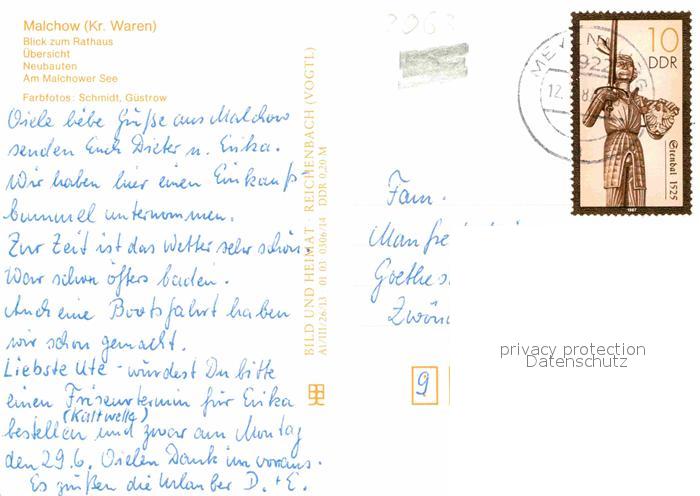 Malchow (Kr. Waren)
Blick zum Rathaus
Übersicht
Neubauten
Am Malchower See
Farbfotos: Schmidt, Güstrow
Viele liebe Grüße aus Malchow
senden Euch Dieter u. Erika.
Wir haben hier einen Einkaufs-
bummel unternommen.
Zur Zeit ist das Wetter sehr schön.
War schon öfters baden.
Auch eine Bootsfahrt haben
wir schon gemacht.
Liebste Ute - würdest Du bitte
einen Friseurtermin für Erika
(Kaltwelle)
bestellen und zwar am Montag
den 29.6. Vielen Dank im voraus.
Es grüßen die Urlauber D. + E.
BILD UND HEIMAT · REICHENBACH (VOGTL)
A1/III/26/13 01 03 0306/14 DDR 0,20 M
Fam.
Manfre
Goethes
Zwön
9
10
DDR
Stendal 1525
922
12.
privacy protection
Datenschutz